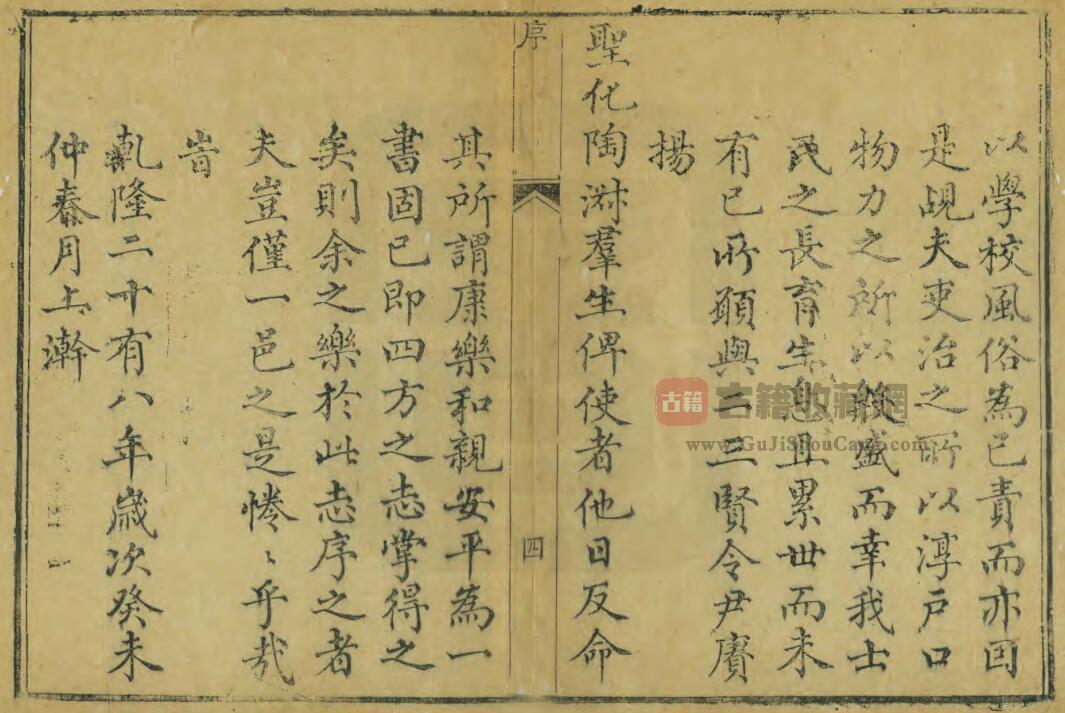 以學校風俗為己責而亦因
是覘夫吏治之所以淳戶口
物力之所以殷盛而幸我士
民之長育生息且累世而未
有已所願與二三賢令尹賡
揚
聖化陶淑羣生俾使者他日反命
序
四
其所謂康樂和親安平為一
書固已即四方之志掌得之
矣則余之樂於此志序之者
夫豈僅一邑之是惓〻乎哉
旹
乾隆二十有八年歲次癸未
仲春月上澣
古籍
古籍收藏網
www.GuJiShouCang.com